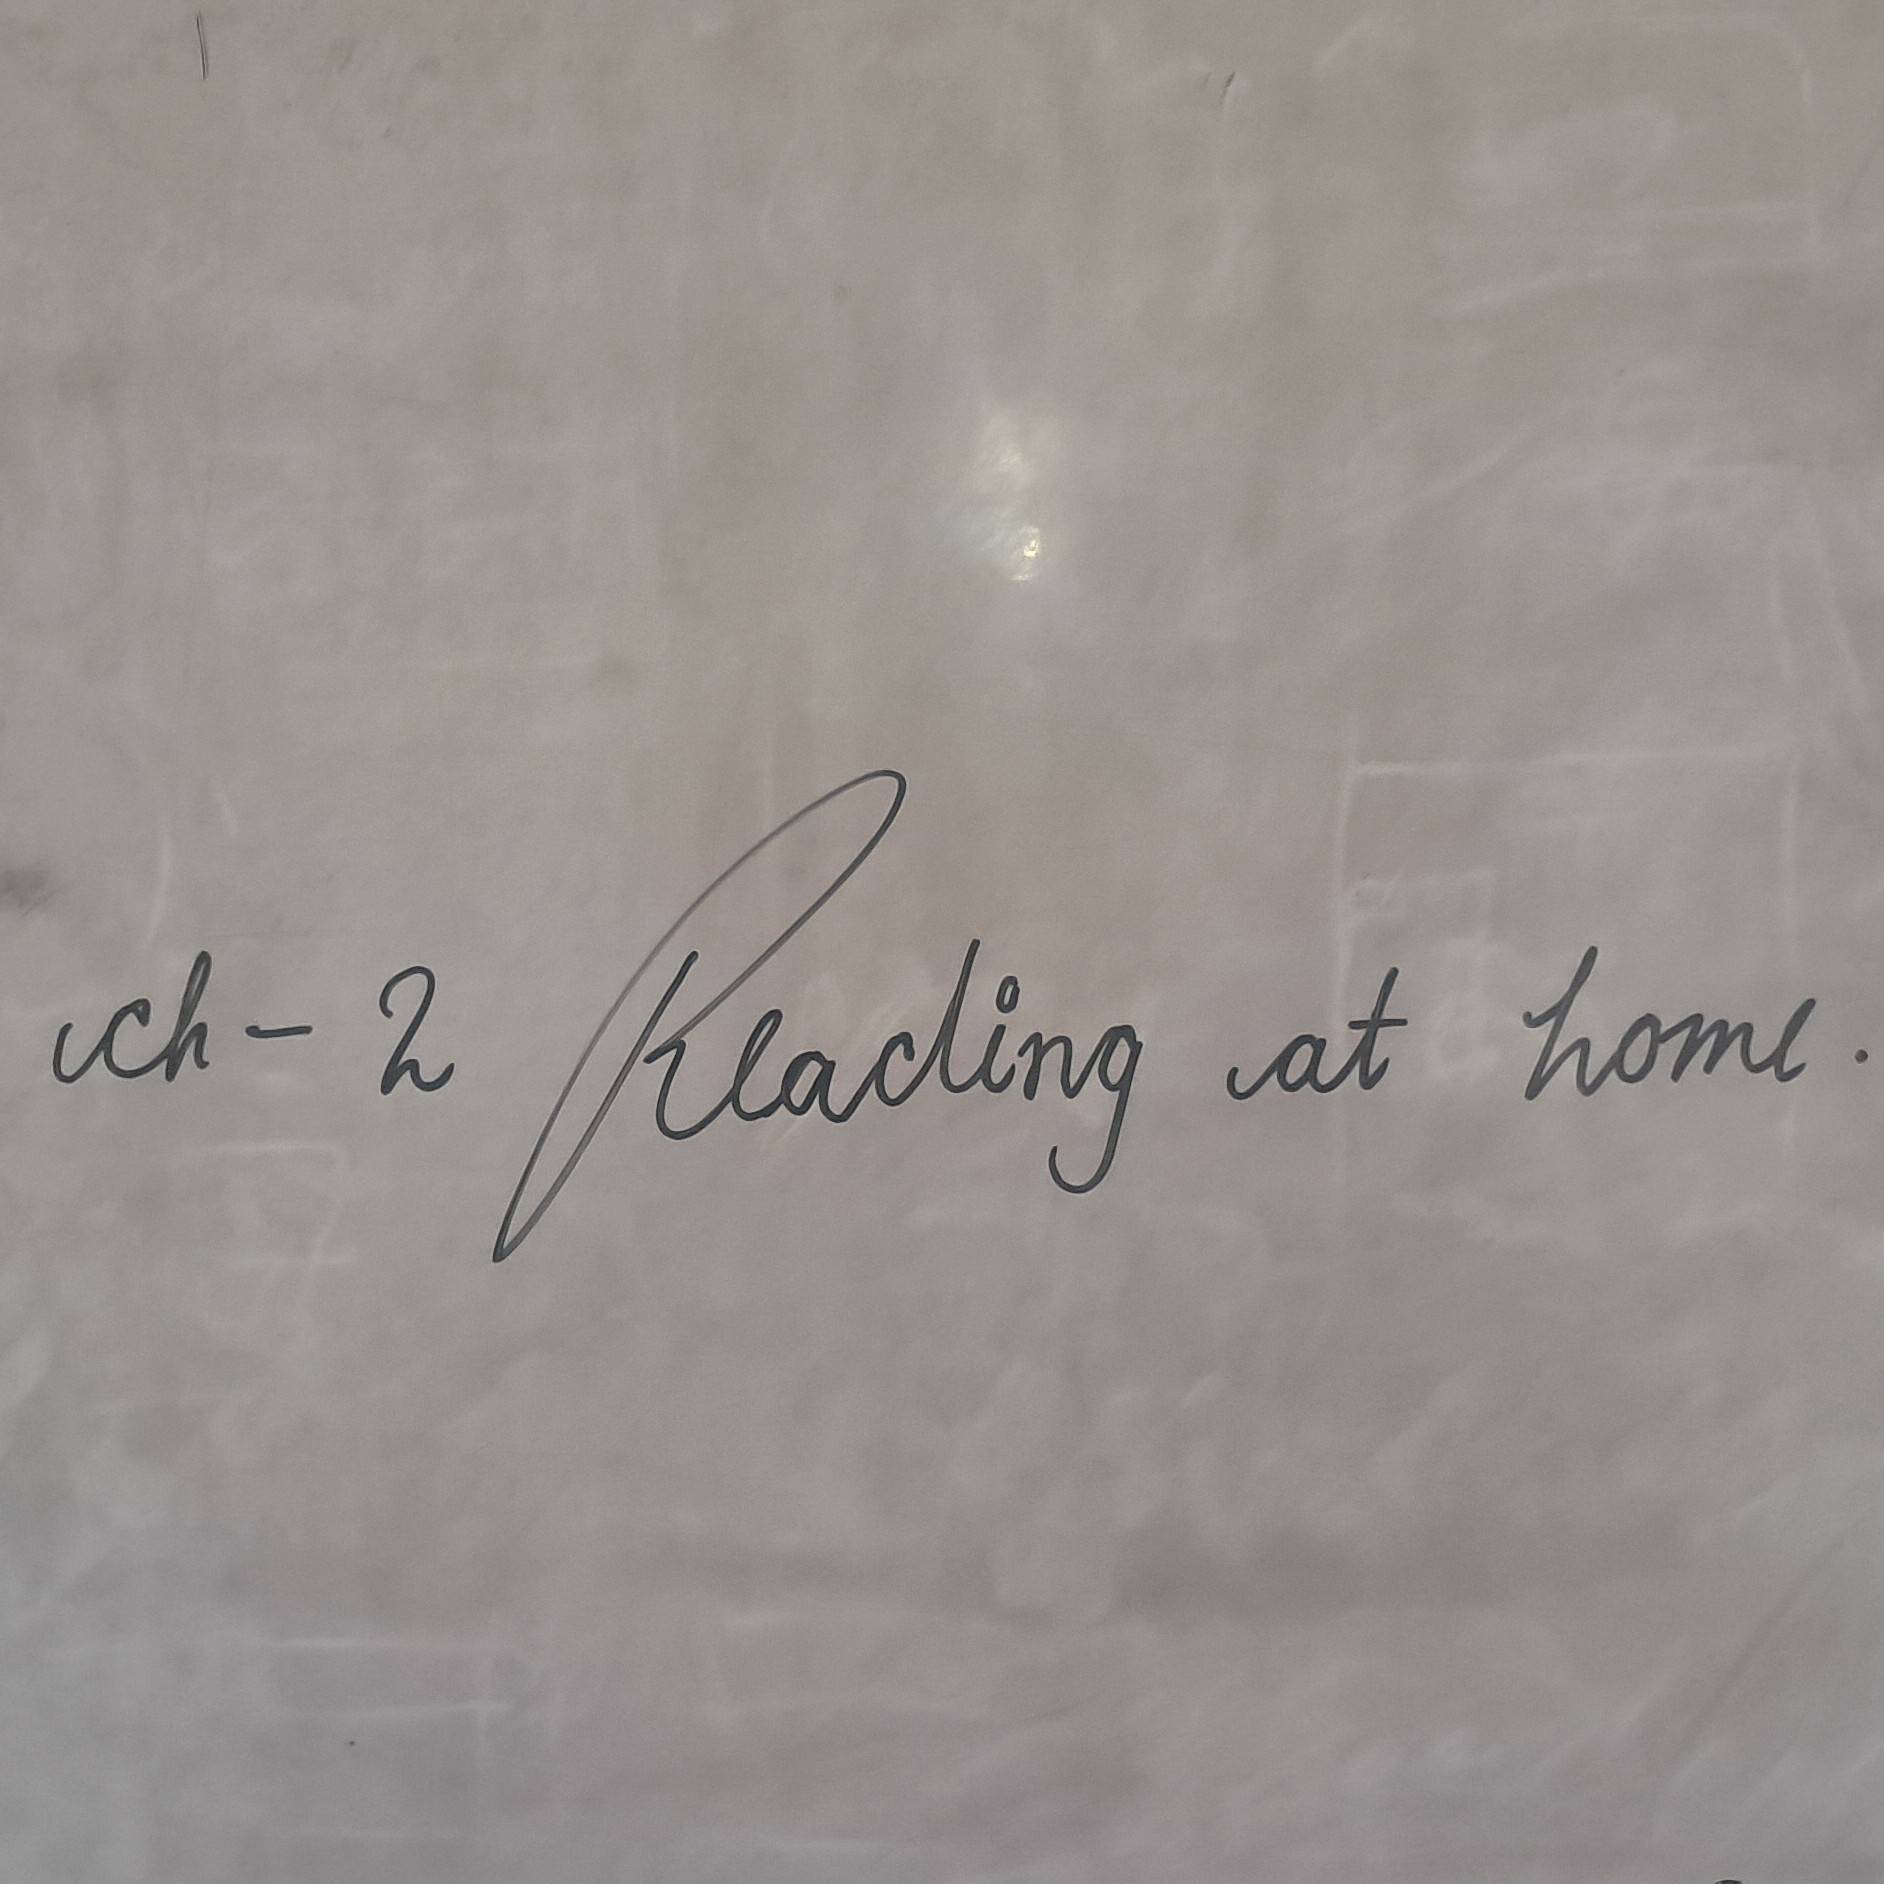 ch - 2 Reading at home.